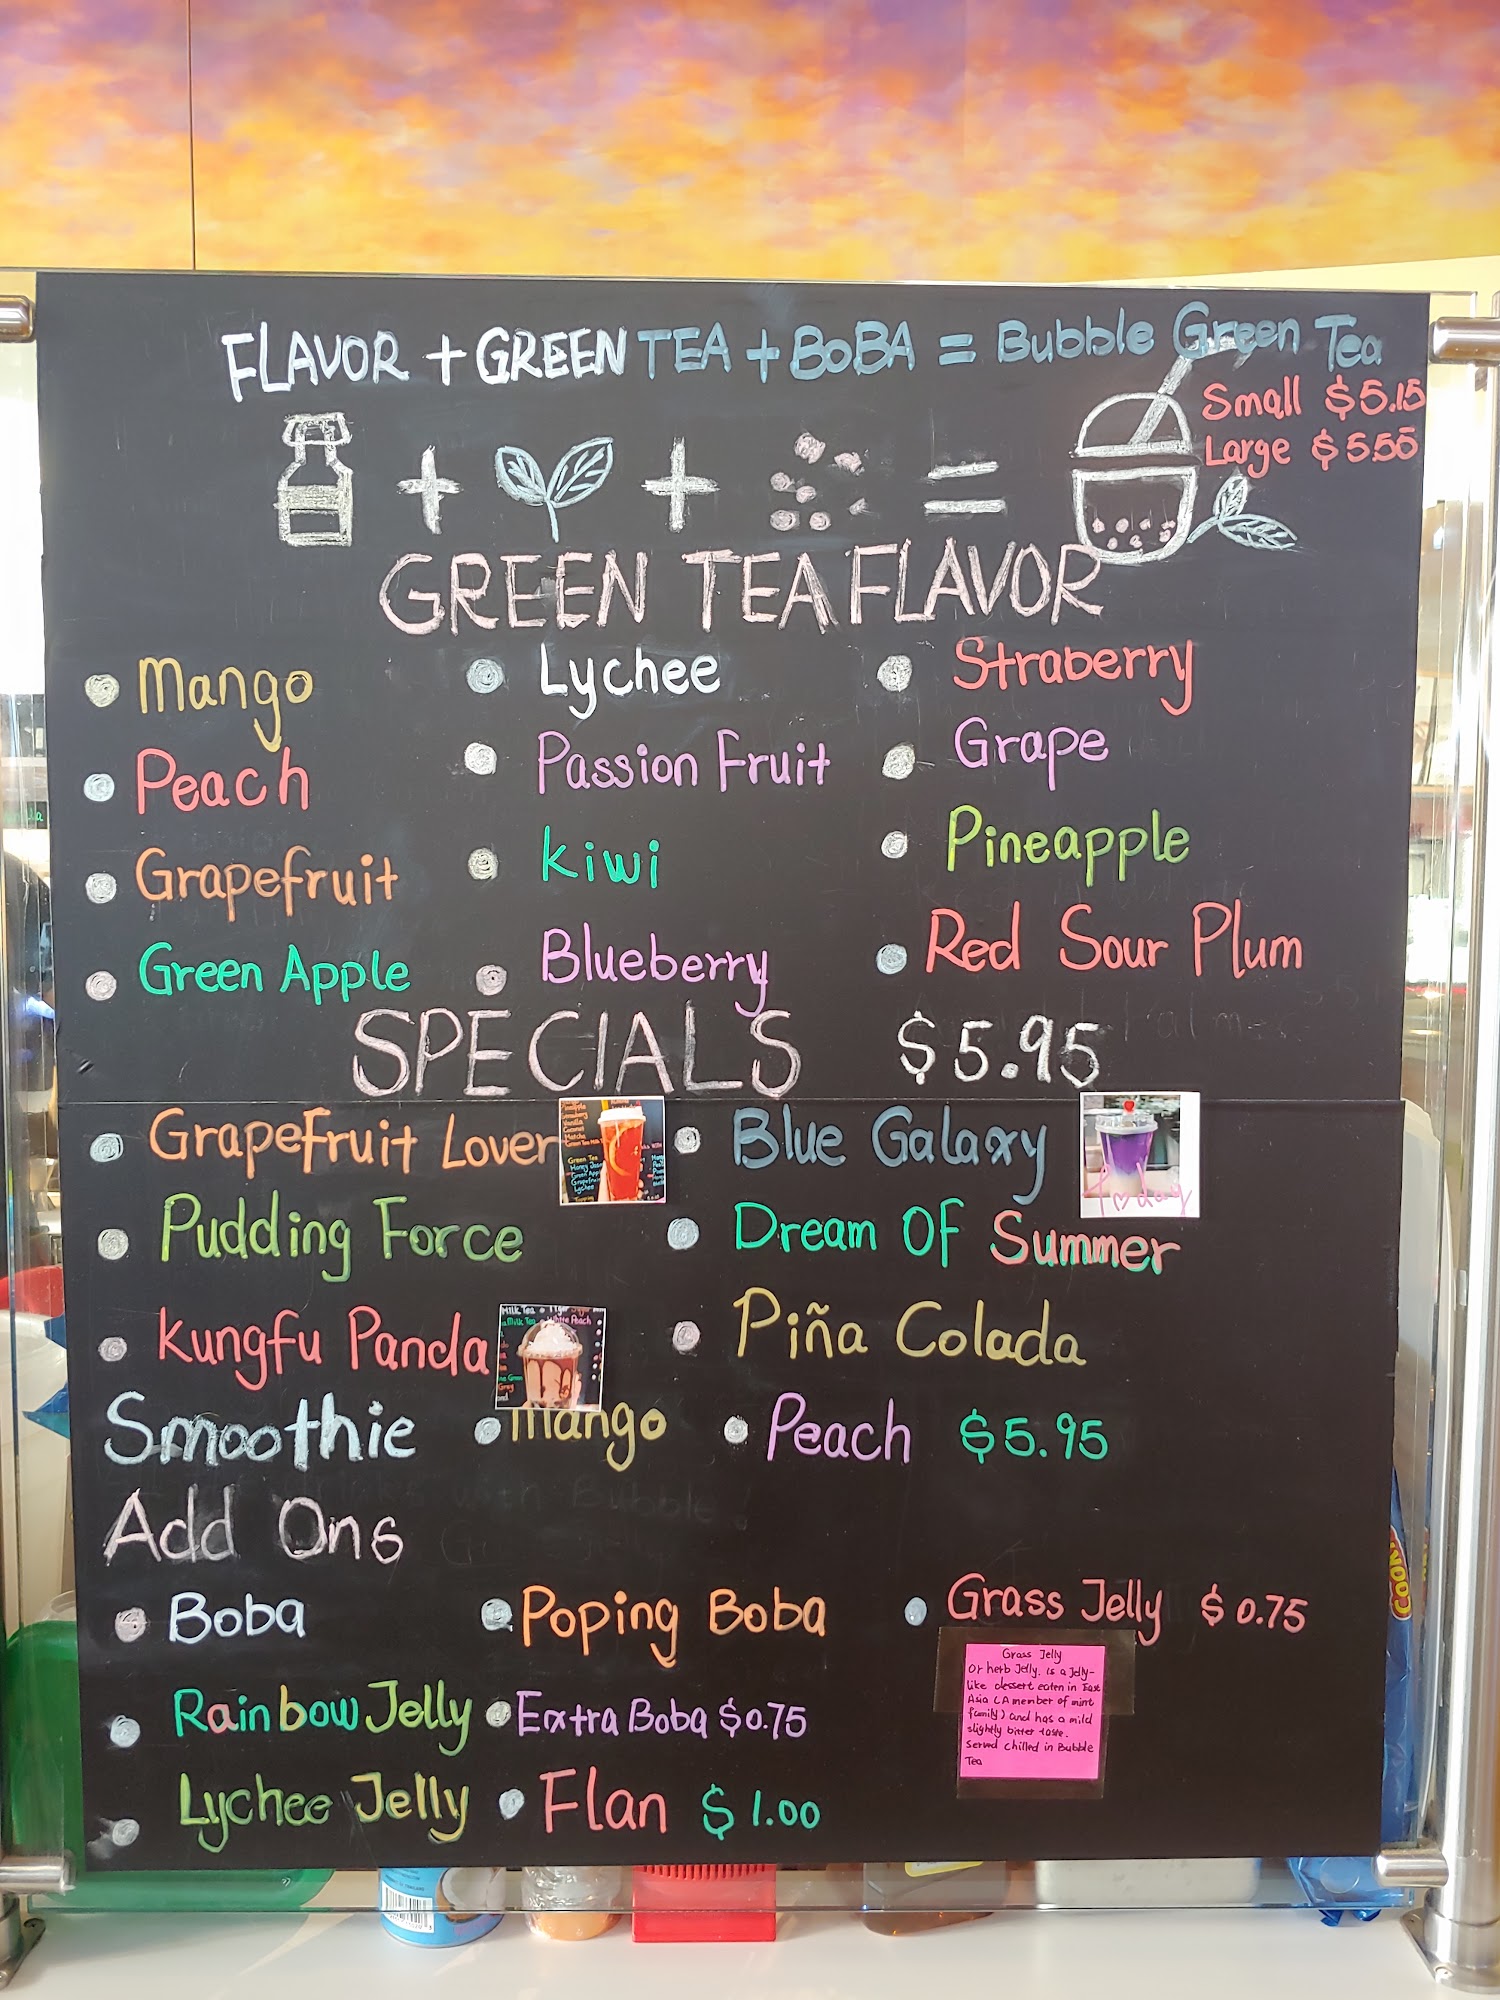 FLAVOR + GREEN TEA + BOBA = Bubble Green Tea
Small $5.15
Large $5.50
GREEN TEA FLAVOR
Mango Lychee Straberry
Peach Passion Fruit Grape
Grapefruit kiwi Pineapple
Green Apple Blueberry Red Sour Plum
SPECIALS $5.95
Grapefruit Lover Blue Galaxy
Pudding Force Dream OF Summer
Kungfu Panda Piña Colada
Smoothie Mango Peach $5.95
Add Ons
Boba Poping Boba Grass Jelly $0.75
Rainbow Jelly Extra Boba $0.75
Lychee Jelly Flan $1.00
Grass Jelly
Or herb Jelly. is a Jelly-
like dessert eaten in East
Asia (A member of mint
family) and has a mild
slightly bitter taste.
Served chilled in Bubble
Tea